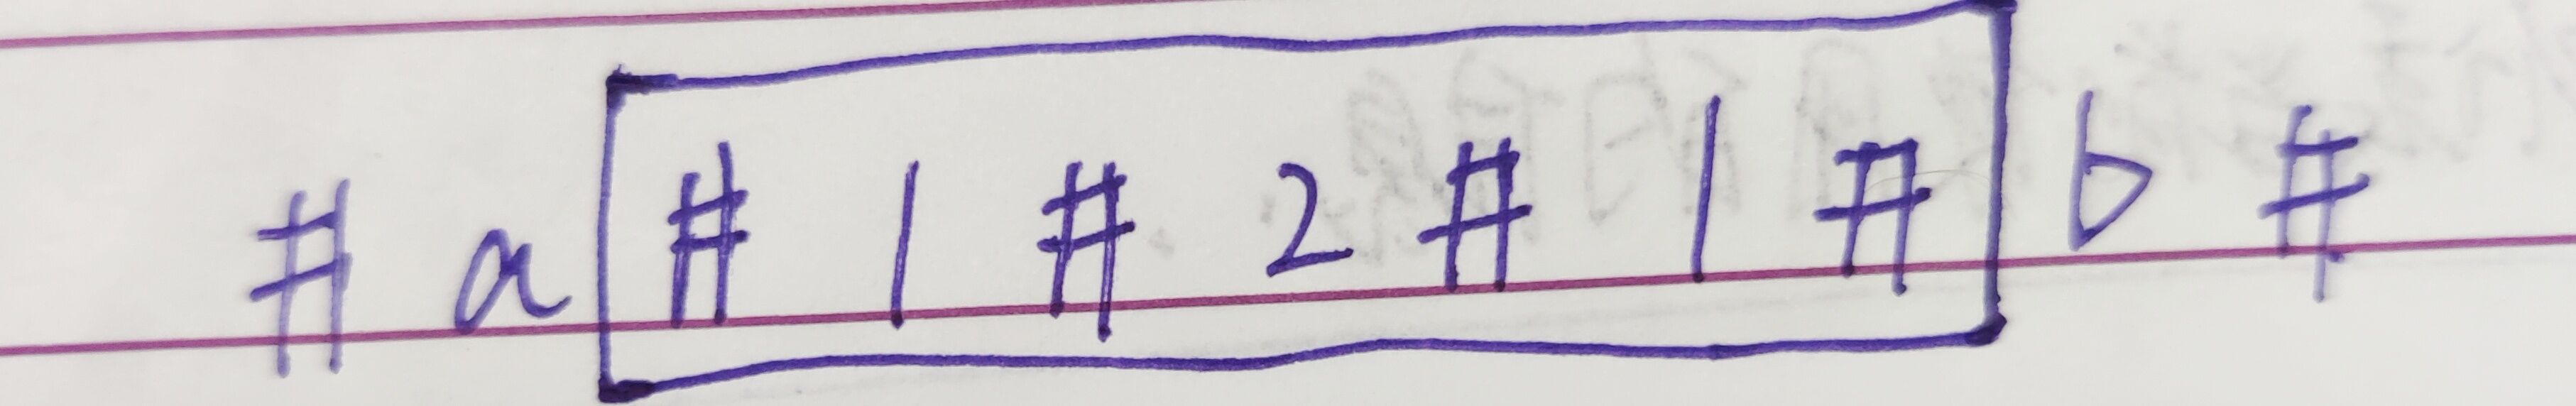 # a # 1 # 2 # 1 # b #